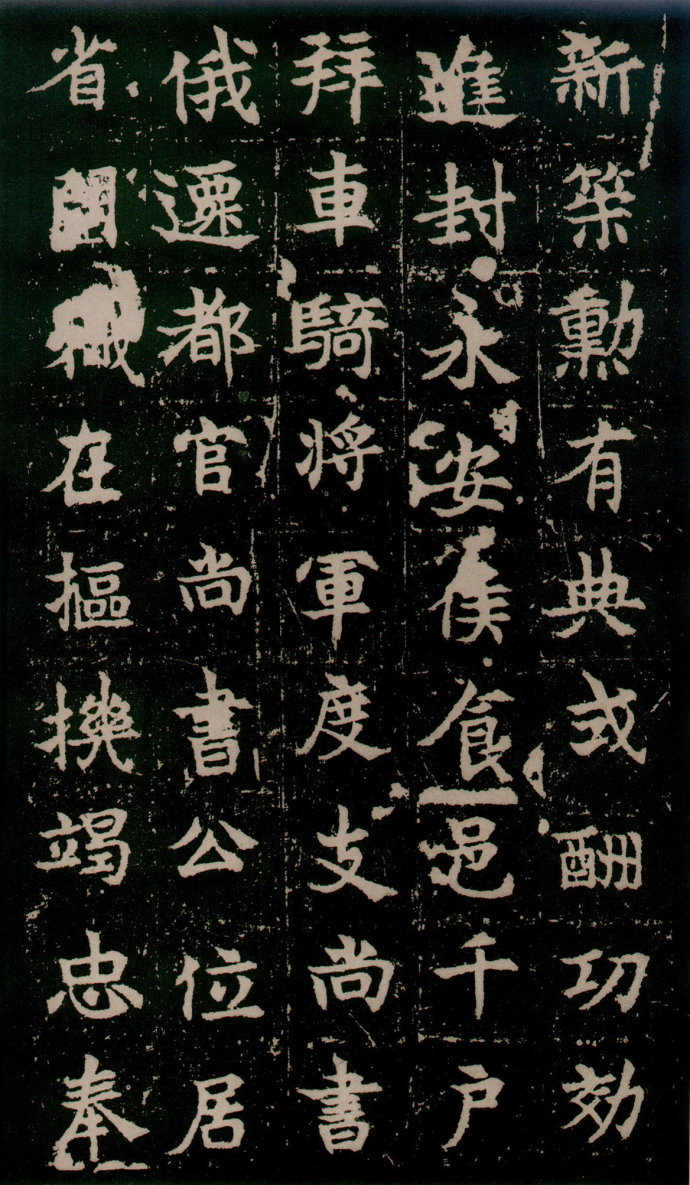 新築勲有典式酬功効
進封永安侯食邑千戶
拜車騎將軍度支尚書
俄遷都官尚書公位居
省閣職在樞機竭忠奉